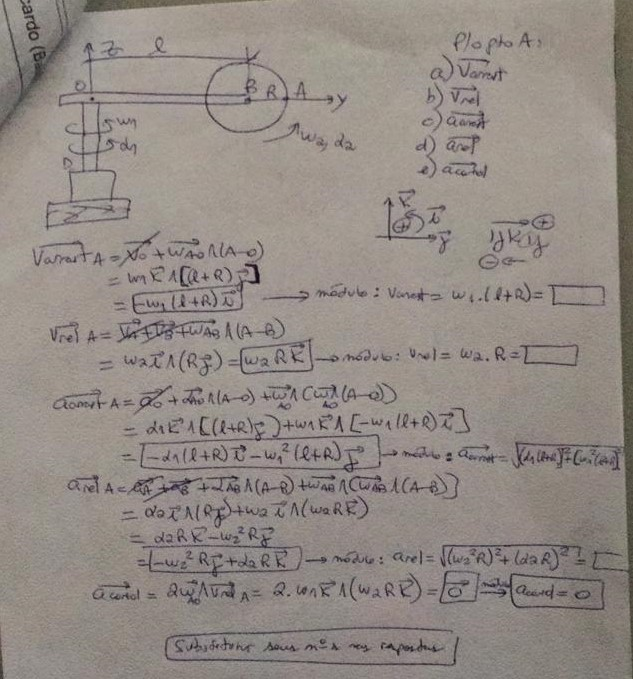 cardo (B
Z
l
O
B
R
A
y
w1
α1
D
w2, α2
P/o pto A:
a) Varrast
b) Vrel
c) aarrast
d) arel
e) acoriol
k
i
j
ijkij
+
-
Varrast A = Vo + wAO ∧ (A-O)
= w1 k ∧ [(l+R) j]
= -w1 (l+R) i → módulo: Varrast = w1.(l+R) =
Vrel A = VA + VB + wAB ∧ (A-B)
= w2 i ∧ (R j) = w2 R k → módulo: Vrel = w2.R =
aarrast A = ao + αAO ∧ (A-O) + wAO ∧ (wAO ∧ (A-O))
= α1 k ∧ [(l+R) j] + w1 k ∧ [-w1 (l+R) i]
= -α1 (l+R) i - w1² (l+R) j → módulo: aarrast = √(α1(l+R))² + (w1²(l+R))²
arel A = aA + aB + αAB ∧ (A-B) + wAB ∧ (wAB ∧ (A-B)]
= α2 i ∧ (R j) + w2 i ∧ (w2 R k)
= α2 R k - w2² R j
= -w2² R j + α2 R k → módulo: arel = √(w2² R)² + (α2 R)² =
acoriol = 2 wAO ∧ Vrel A = 2. w1 k ∧ (w2 R k) = 0 módulo → acoriol = 0
Substituir seus nºs nas respostas